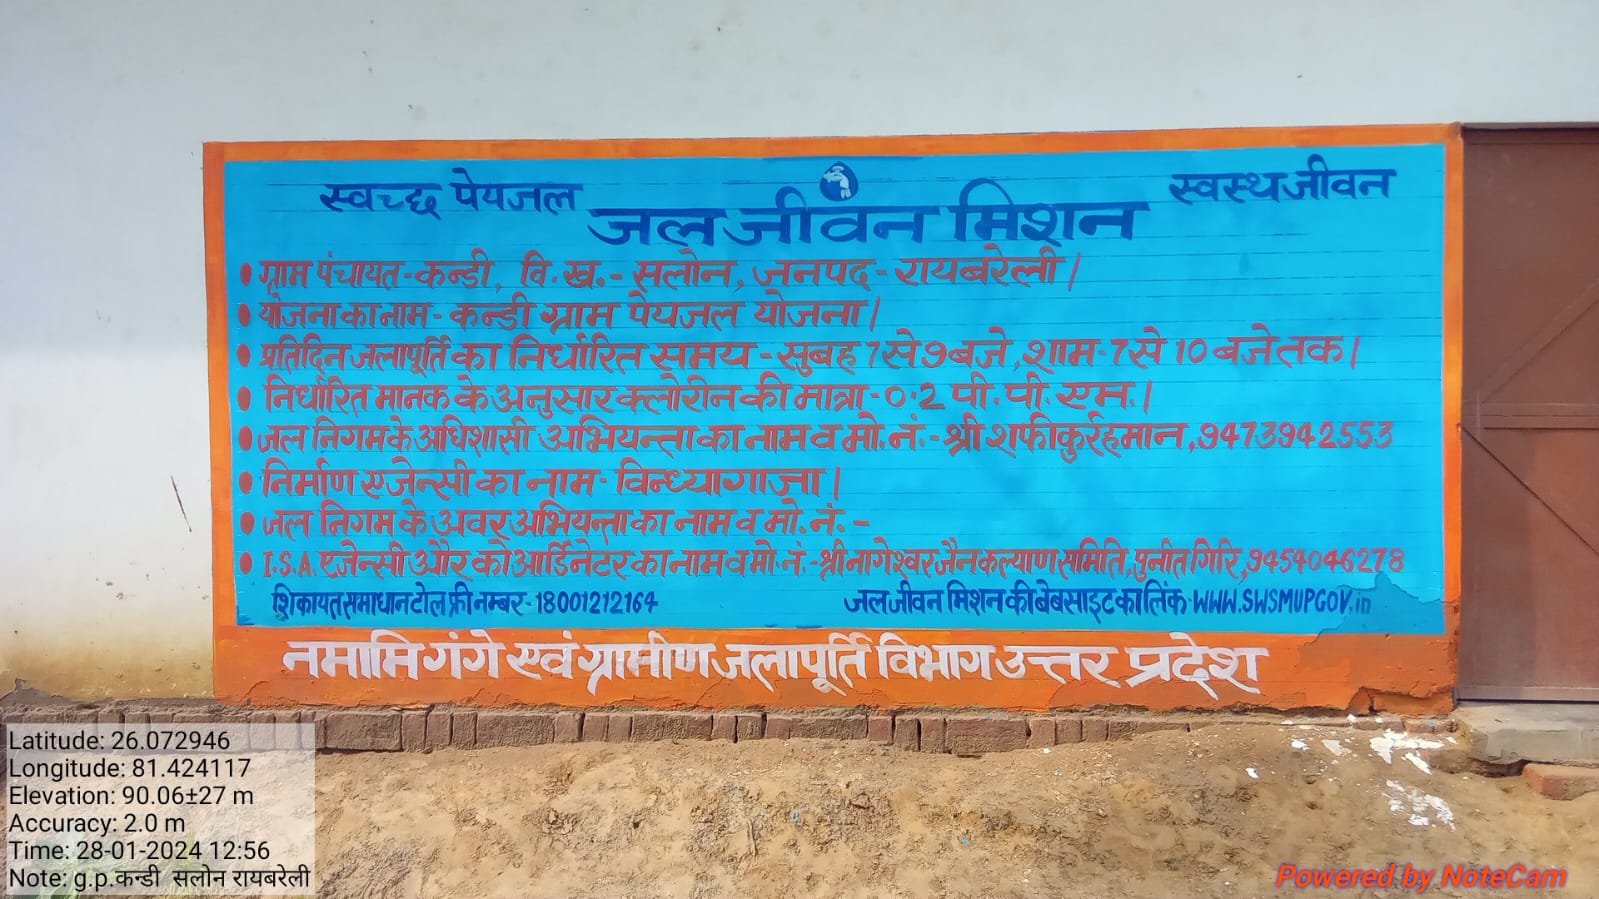 स्वच्छ पेयजल
जल जीवन मिशन
स्वस्थ जीवन
• ग्राम पंचायत - कन्डी, वि. ख. - सलोन, जनपद - रायबरेली।
• योजना का नाम - कन्डी ग्राम पेयजल योजना।
• प्रतिदिन जलापूर्ति का निर्धारित समय - सुबह 7 से 9 बजे, शाम - 7 से 10 बजे तक।
• निर्धारित मानक के अनुसार क्लोरीन की मात्रा - 0.2 पी. पी. एम.।
• जल निगम के अधिशासी अभियन्ता का नाम व मो. नं. - श्री शफीकुर्रहमान, 9473942553
• निर्माण एजेन्सी का नाम - विन्ध्या गाजा।
• जल निगम के अवर अभियन्ता का नाम व मो. नं. -
• I.S.A. एजेन्सी और कोआर्डिनेटर का नाम व मो. नं. - श्री नागेश्वर जैन कल्याण समिति, पुनीत गिरि, 9454046278
शिकायत समाधान टोल फ्री नम्बर - 18001212164
जल जीवन मिशन की बेबसाइट का लिंक - WWW.SWSMUPGOV.in
नमामि गंगे एवं ग्रामीण जलापूर्ति विभाग उत्तर प्रदेश
Latitude: 26.072946
Longitude: 81.424117
Elevation: 90.06±27 m
Accuracy: 2.0 m
Time: 28-01-2024 12:56
Note: g.p.कन्डी सलोन रायबरेली
Powered by NoteCam